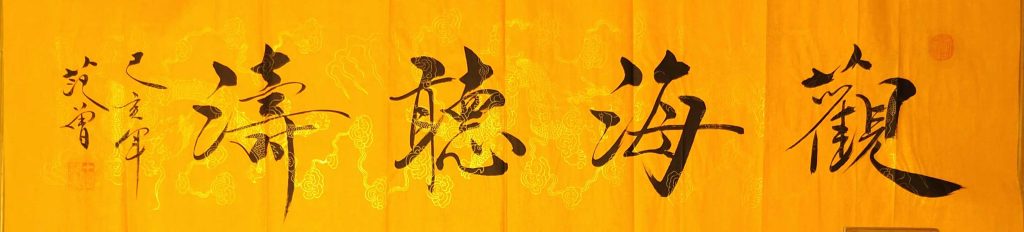 觀海聽濤
己亥年
范曾